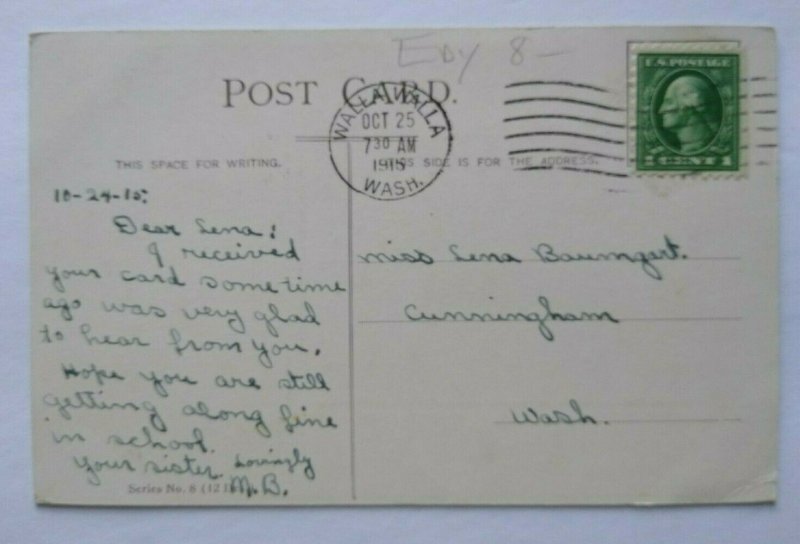 Edy 8-
POST CARD.
U.S. POSTAGE
1 CENT 1
WALLA WALLA
OCT 25
7 30 AM
1915
WASH.
THIS SPACE FOR WRITING.
THIS SIDE IS FOR THE ADDRESS.
10-24-15;
Dear Lena;
I received
your card some time
ago was very glad
to hear from you.
Hope you are still
getting along fine
in school.
Your sister Lovingly
M.B.
Series No. 8 (12
Miss Lena Baumgart.
Cunningham
Wash.